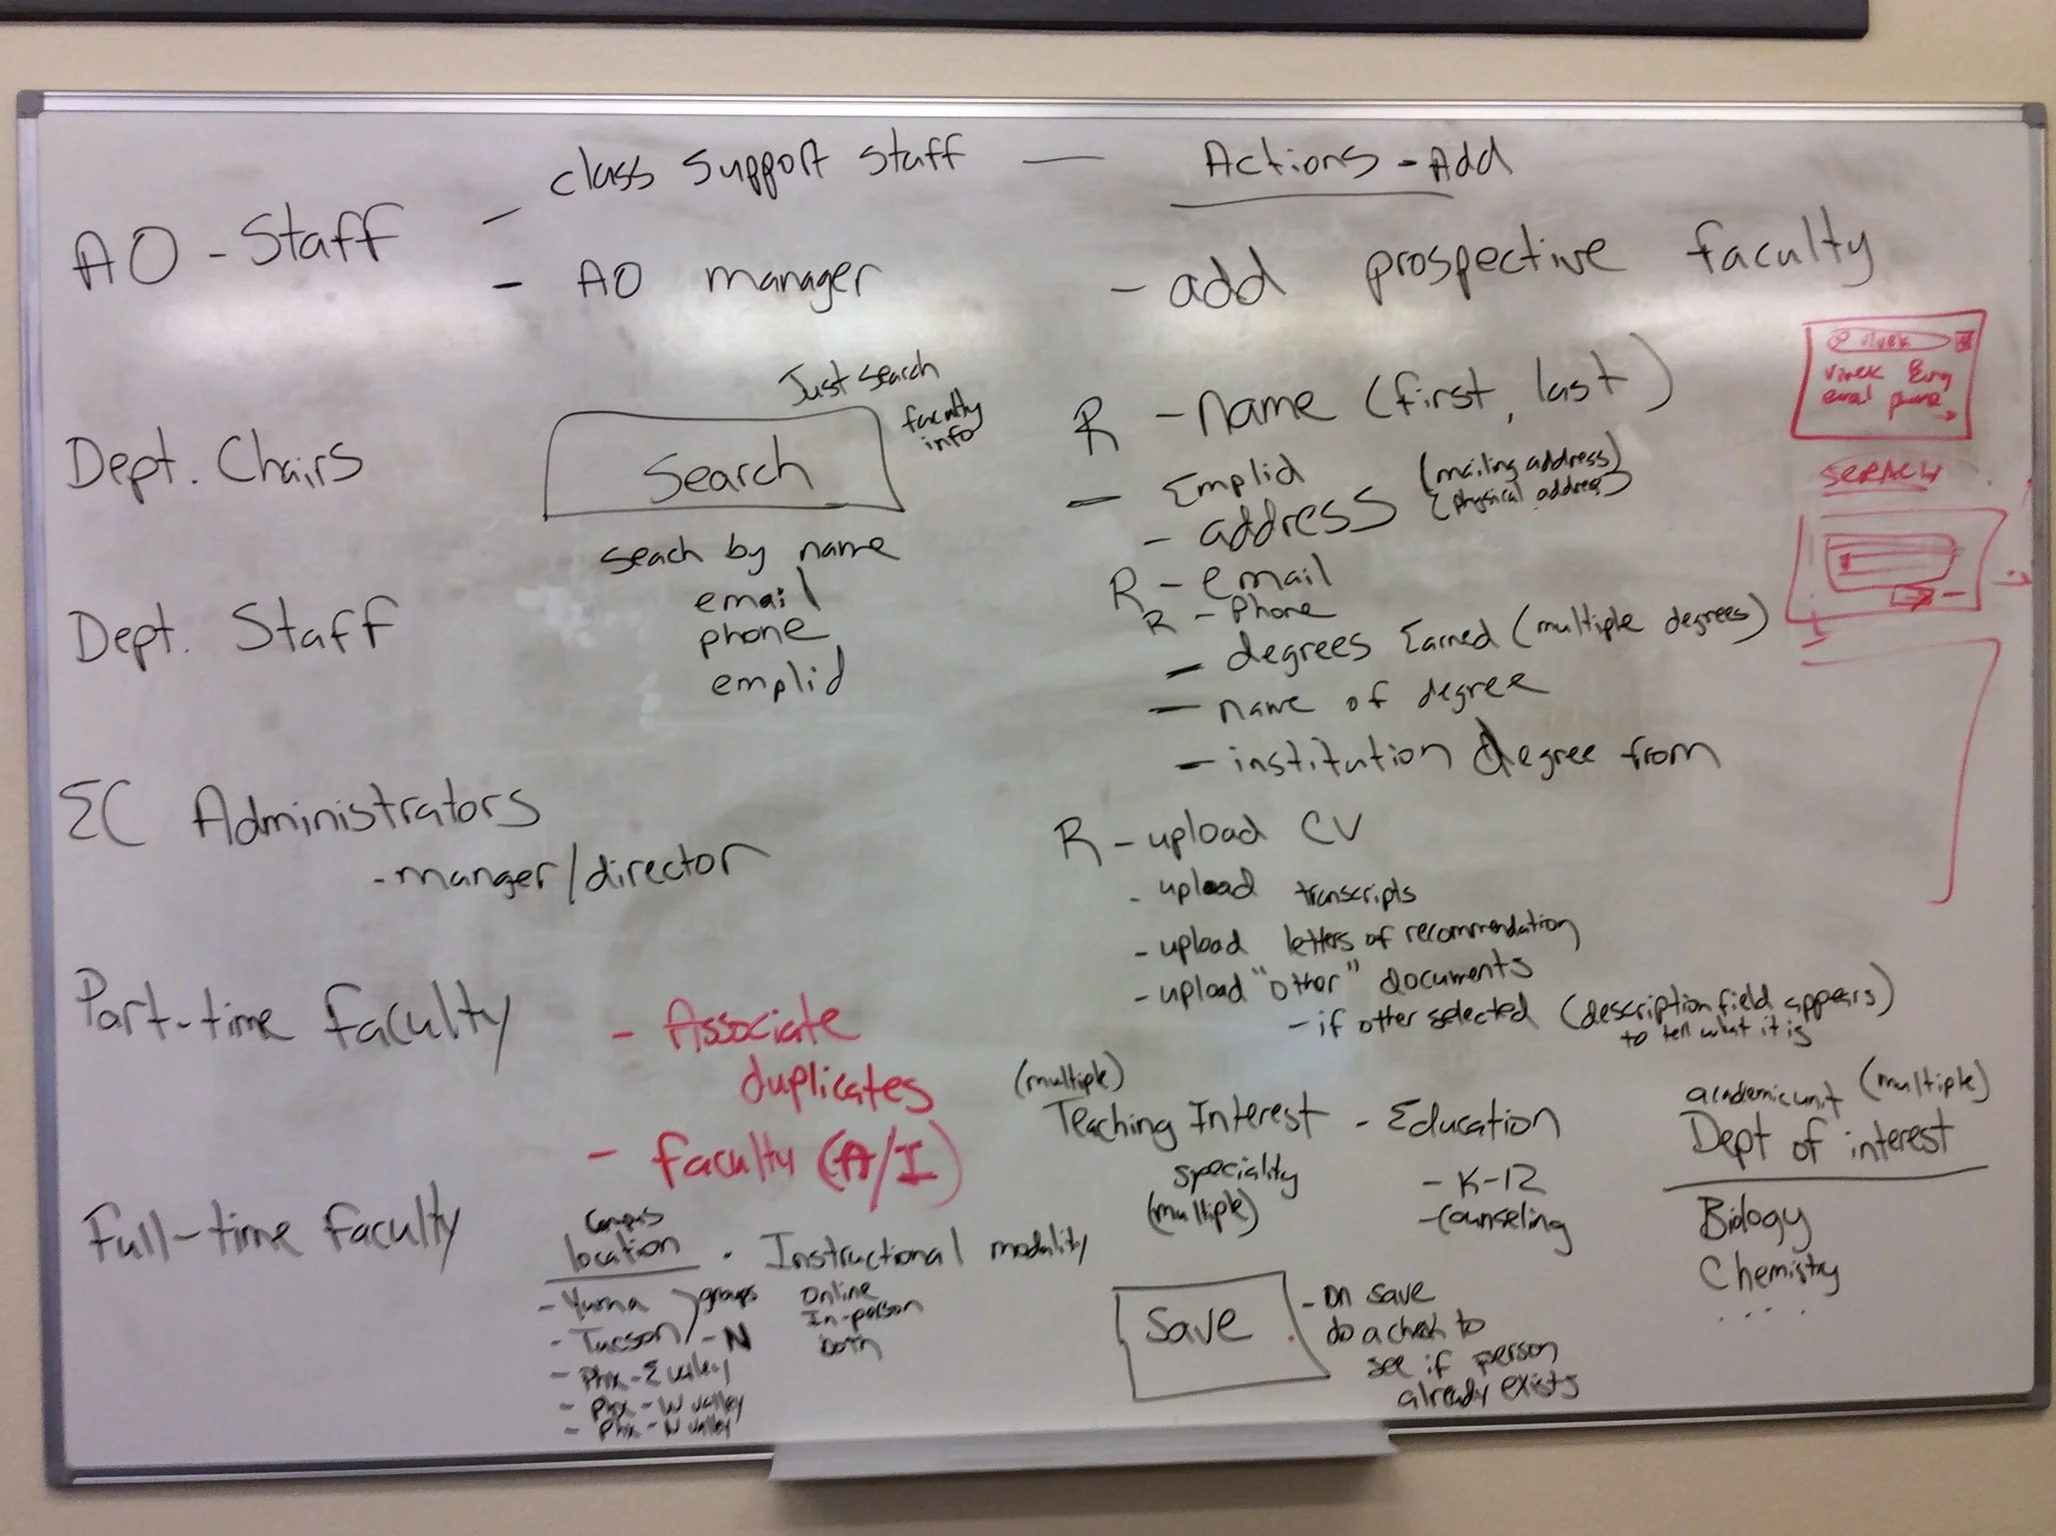 class support staff — Actions - Add
AO - Staff -
- AO manager
- add prospective faculty
Just search
faculty
info
Search
seach by name
email
phone
emplid
Dept. Chairs
Dept. Staff
EC Administrators
- manger/director
Part-time faculty
Full-time faculty
R - name (first, last)
- Emplid
- address (mailing address)
(physical address)
R - email
R - Phone
- degrees Earned (multiple degrees)
- name of degree
- institution degree from
R - upload CV
- upload transcripts
- upload letters of recommendation
- upload "other" documents
- if other selected (description field appears)
to tell what it is
- Associate
duplicates
- faculty (A/I)
(multiple)
Teaching Interest - Education
speciality
(multiple)
- K-12
- Counseling
academic unit (multiple)
Dept of interest
Biology
Chemistry
. . . .
Campus
location - Instructional modality
- Yuma groups
- Tucson - N
- Phx - E valley
- Phx - W valley
- Phx - N valley
Online
In-person
both
Save
- on save
do a check to
see if person
already exists
Vivek
email phone
SERACH